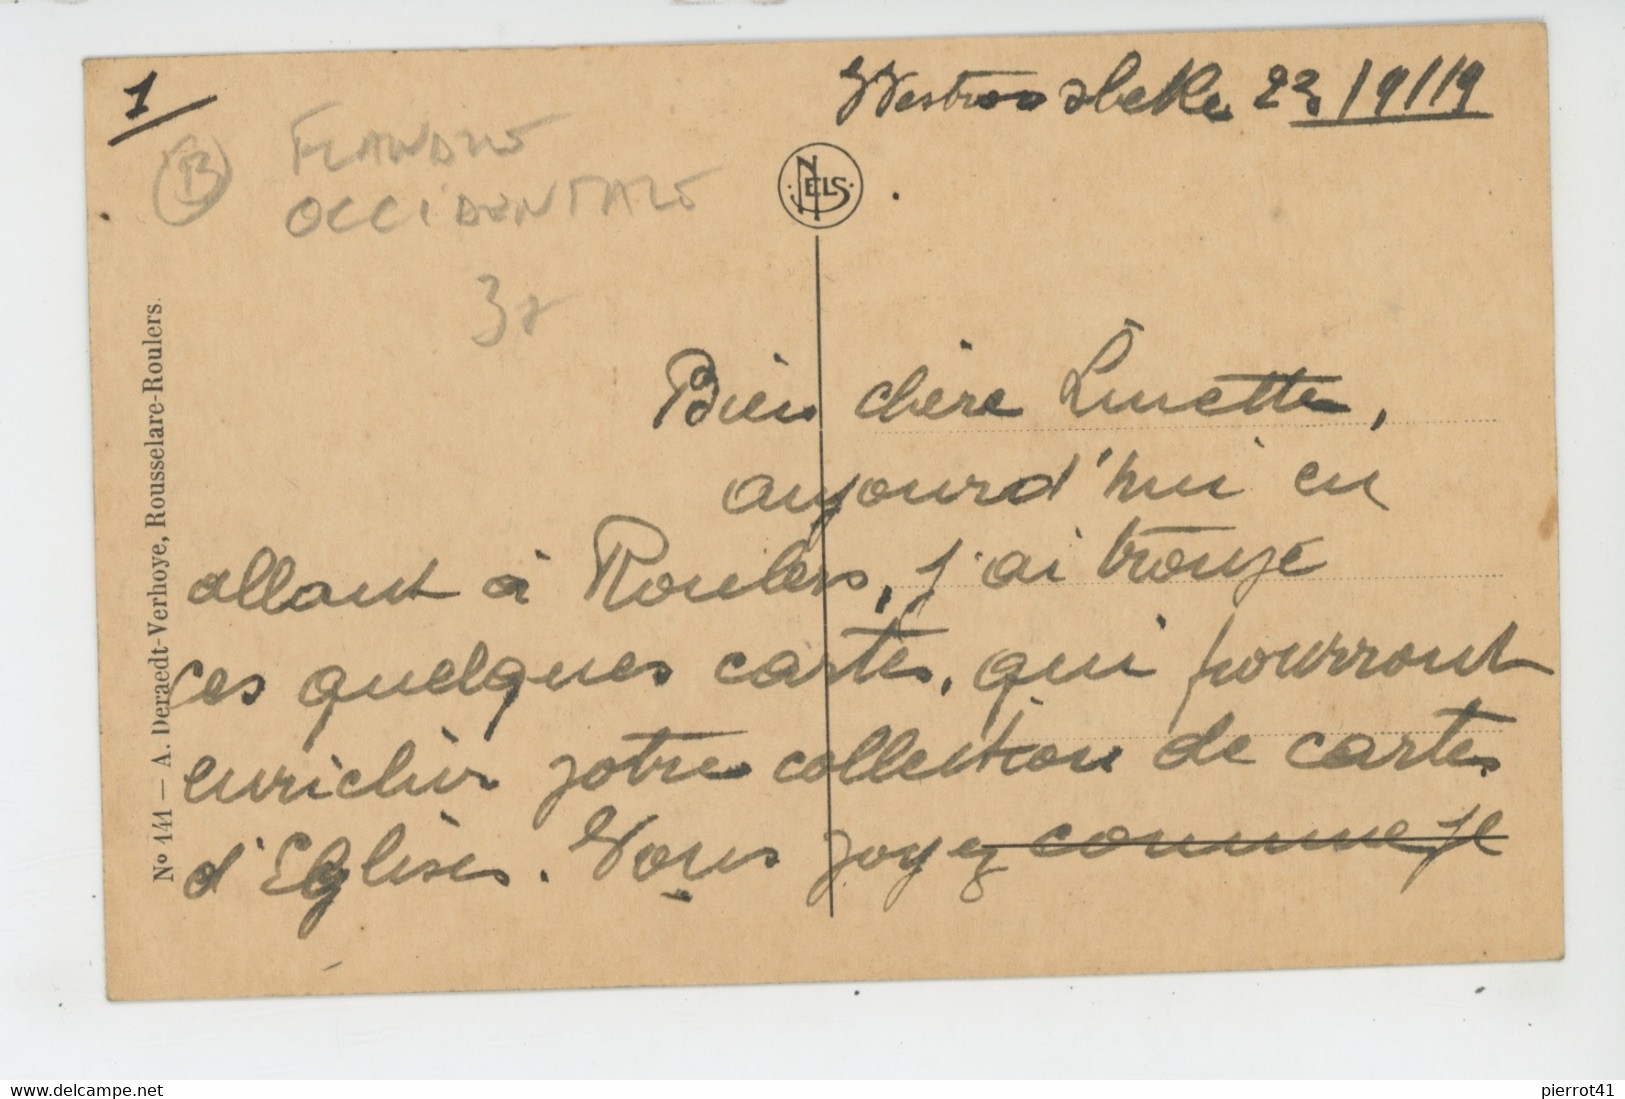 1
Westroosbeke 23/9/19
B
FLANDRE
OCCIDENTALE
NELS
Bien chère Linette,
aujourd'hui en
allant à Roulers, j'ai trouvé
ces quelques cartes, qui pourront
enrichir votre collection de cartes
d'Eglises. Vous voyez comme je
Nº 141 — A. Deraedt-Verhoye, Rousselare-Roulers.
www.delcampe.net
pierrot41